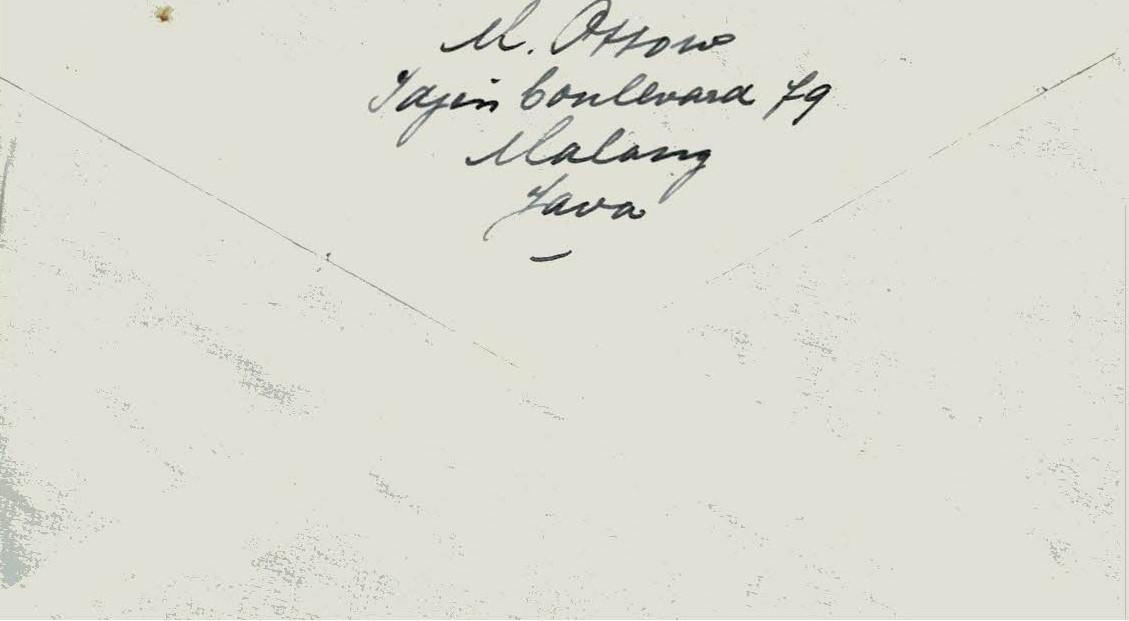 M. Ottow
Idjen boulevard 79
Malang
Java